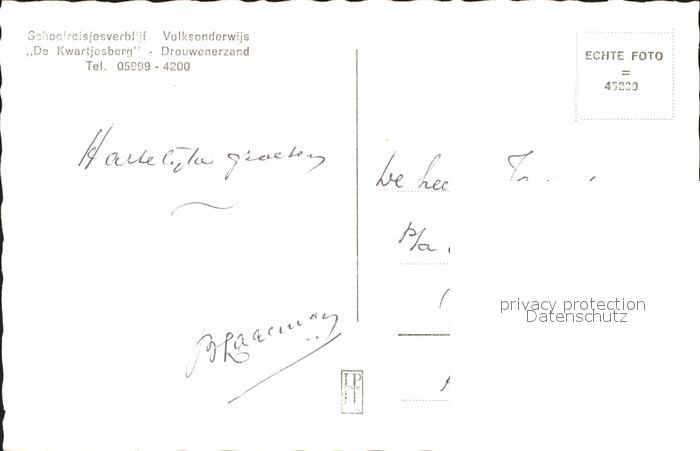 Schoolreisjesverblijf Volksonderwijs
„De Kwartjesberg" - Drouwenerzand
Tel. 05999 - 4200
ECHTE FOTO
=
Hartelijke groeten
De hee
P/a
privacy protection
Datenschutz